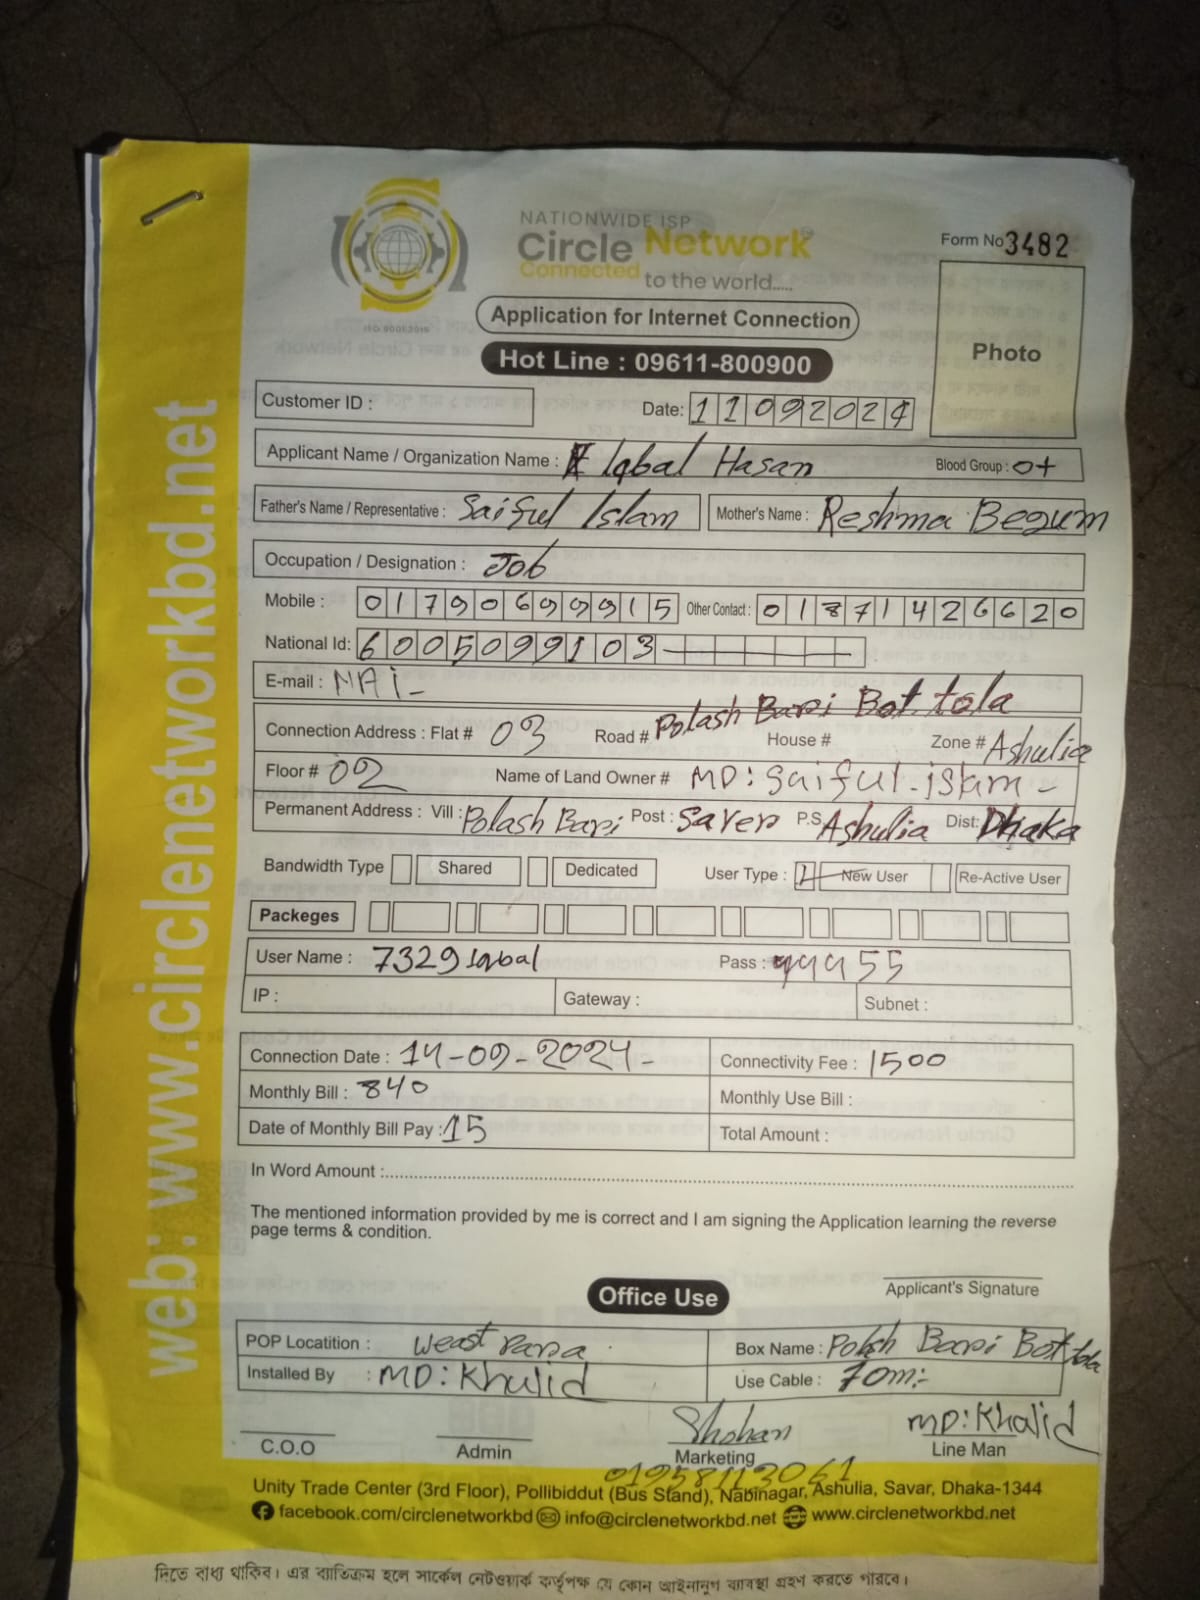 NATIONWIDE ISP
Circle Network
Connected to the world.....
ISO 9001:2015
Form No 3482
Application for Internet Connection
Photo
Hot Line : 09611-800900
Customer ID :
Date: 11092024
Applicant Name / Organization Name : Iqbal Hasan Blood Group : O+
Father's Name / Representative : Saiful Islam Mother's Name : Reshma Begum
Occupation / Designation : Job
Mobile : 01790699915 Other Contact : 01871426620
National Id: 6005099103
E-mail : NAi-
Polash Bari Bot tola
Connection Address : Flat # 03 Road # House # Zone # Ashulia
Floor # 02 Name of Land Owner # MD: Saiful-islam-
Permanent Address : Vill : Polash Bari Post : Saver P.S Ashulia Dist: Dhaka
Bandwidth Type Shared Dedicated User Type : New User Re-Active User
Packeges
User Name : 7329 Iqbal Pass : 99955
IP : Gateway : Subnet :
Connection Date : 14-09-2024- Connectivity Fee : 1500
Monthly Bill : 840 Monthly Use Bill :
Date of Monthly Bill Pay : 15 Total Amount :
In Word Amount :
The mentioned information provided by me is correct and I am signing the Application learning the reverse
page terms & condition.
Applicant's Signature
Office Use
POP Locatition : Weast Para Box Name : Polsh Bari Bot tola
Installed By : MD: Khalid Use Cable : 70m:-
Shohan MD: Khalid
C.O.O Admin Marketing Line Man
01958113061
Unity Trade Center (3rd Floor), Pollibiddut (Bus Stand), Nabinagar, Ashulia, Savar, Dhaka-1344
facebook.com/circlenetworkbd info@circlenetworkbd.net www.circlenetworkbd.net
web: www.circlenetworkbd.net
দিতে বাধ্য থাকিব। এর ব্যতিক্রম হলে সার্কেল নেটওয়ার্ক কর্তৃপক্ষ যে কোন আইনানুগ ব্যবস্থা গ্রহণ করতে পারবে।